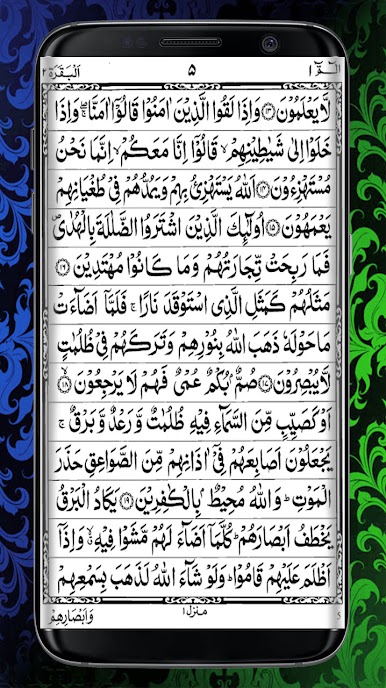 الٓمّٓ ۱ ۵ اَلْبَقَرَة ۲
لَّا یَعْلَمُوْنَ ﴿۱۳﴾ وَاِذَا لَقُوا الَّذِیْنَ اٰمَنُوْا قَالُوْۤا اٰمَنَّا ۚۖ وَاِذَا
خَلَوْا اِلٰی شَیٰطِیْنِهِمْ ۙ قَالُوْۤا اِنَّا مَعَکُمْ ۙ اِنَّمَا نَحْنُ
مُسْتَهْزِءُوْنَ ﴿۱۴﴾ اَللّٰهُ یَسْتَهْزِئُ بِهِمْ وَیَمُدُّهُمْ فِیْ طُغْیَانِهِمْ
یَعْمَهُوْنَ ﴿۱۵﴾ اُولٰٓئِكَ الَّذِیْنَ اشْتَرَوُا الضَّلٰلَةَ بِالْهُدٰی ۪
فَمَا رَبِحَتْ تِّجَارَتُهُمْ وَمَا کَانُوْا مُهْتَدِیْنَ ﴿۱۶﴾
مَثَلُهُمْ کَمَثَلِ الَّذِی اسْتَوْقَدَ نَارًا ۚ فَلَمَّاۤ اَضَآءَتْ
مَا حَوْلَهٗ ذَهَبَ اللّٰهُ بِنُوْرِهِمْ وَتَرَکَهُمْ فِیْ ظُلُمٰتٍ
لَّا یُبْصِرُوْنَ ﴿۱۷﴾ صُمٌّۢ بُکْمٌ عُمْیٌ فَهُمْ لَا یَرْجِعُوْنَ ﴿۱۸﴾
اَوْ کَصَیِّبٍ مِّنَ السَّمَآءِ فِیْهِ ظُلُمٰتٌ وَّرَعْدٌ وَّبَرْقٌ ۚ
یَجْعَلُوْنَ اَصَابِعَهُمْ فِیْۤ اٰذَانِهِمْ مِّنَ الصَّوَاعِقِ حَذَرَ
الْمَوْتِ ؕ وَاللّٰهُ مُحِیْطٌۢ بِالْکٰفِرِیْنَ ﴿۱۹﴾ یَکَادُ الْبَرْقُ
یَخْطَفُ اَبْصَارَهُمْ ؕ کُلَّمَاۤ اَضَآءَ لَهُمْ مَّشَوْا فِیْهِ ۙۗ وَاِذَاۤ
اَظْلَمَ عَلَیْهِمْ قَامُوْا ؕ وَلَوْ شَآءَ اللّٰهُ لَذَهَبَ بِسَمْعِهِمْ
منزل ۱
وَاَبْصَارِهِمْ